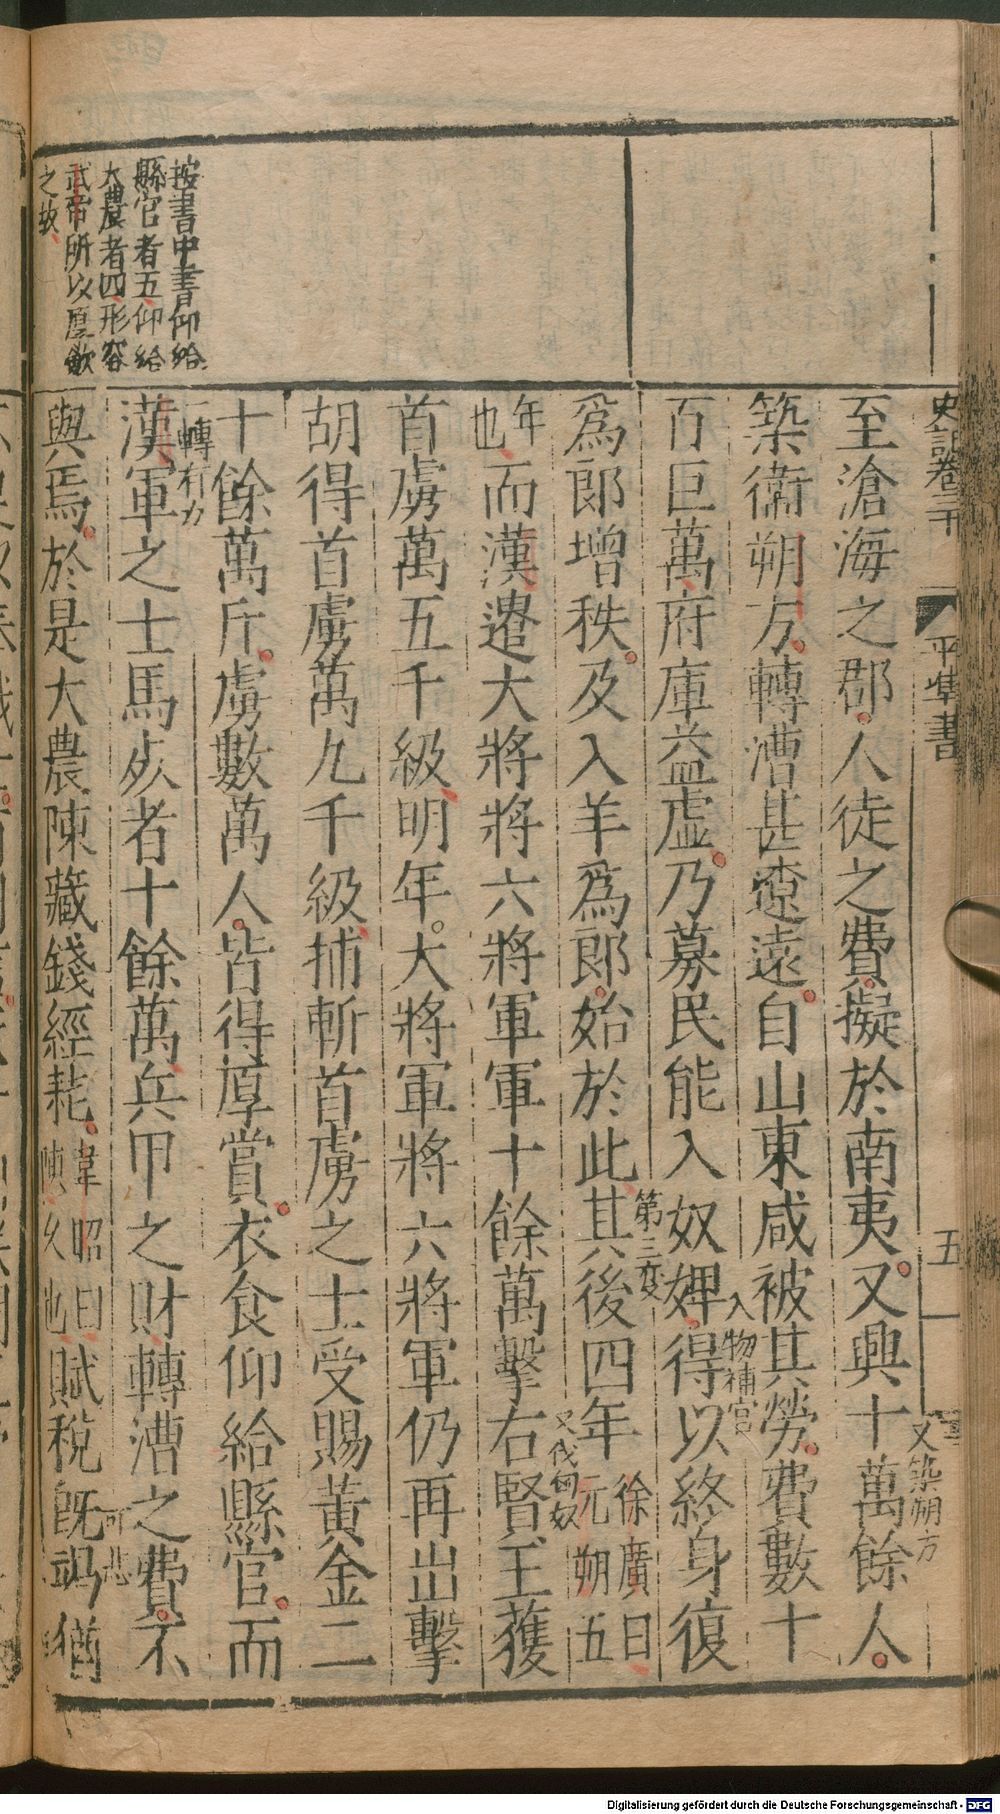 史記卷三十
平準書
五
至滄海之郡人徒之費擬於南夷又興十萬餘人
又築朔方
築衞朔方轉漕甚遼遠自山東咸被其勞費數十
入物補官
百巨萬府庫益虛乃募民能入奴婢得以終身復
第三变
爲郎增秩及入羊爲郎始於此其後四年徐廣曰元朔五
又伐匈奴
年也而漢遣大將將六將軍軍十餘萬擊右賢王獲
首虜萬五千級明年大將軍將六將軍仍再出擊
胡得首虜萬九千級捕斬首虜之士受賜黃金二
十餘萬斤虜數萬人皆得厚賞衣食仰給縣官而
轉有力
漢軍之士馬死者十餘萬兵甲之財轉漕之費不
與焉於是大農陳藏錢經耗韋昭曰陳久也賦稅旣竭猶
按書中書仰給
縣官者五仰給
大農者四形容
武帝所以厚歛
之故
Digitalisierung gefördert durch die Deutsche Forschungsgemeinschaft - DFG